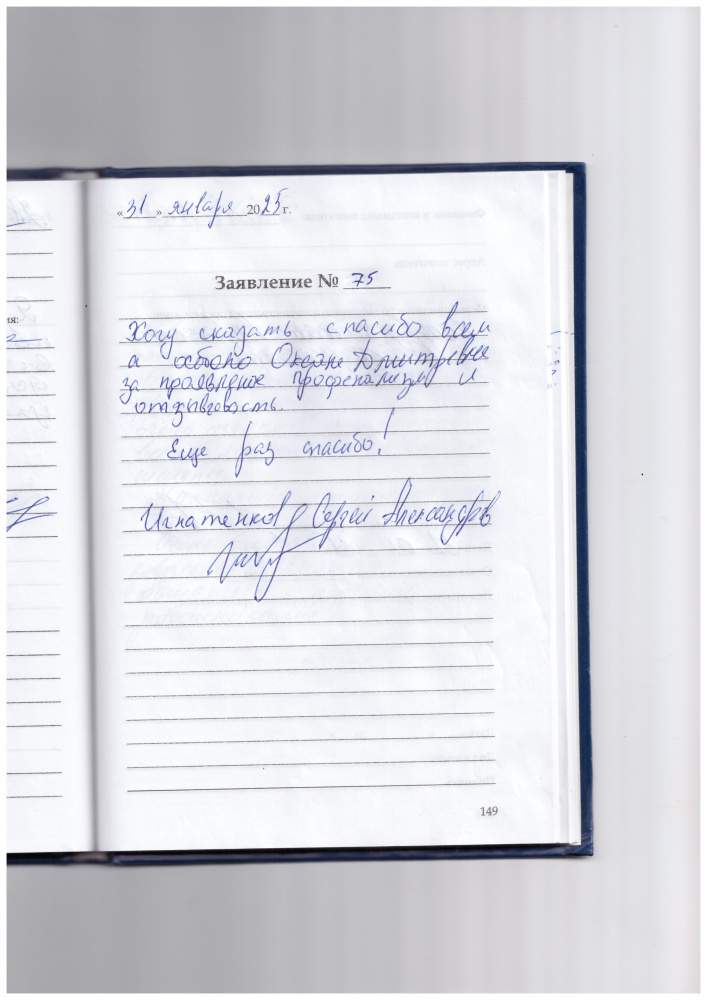 «31» января 2025 г.
Заявление № 75
Хочу сказать спасибо всем
а особо Оксане Дмитревне
за проявление профенализм и
отзывчевость.
Еще раз спасибо!
Игнатенков Сергей Александров
149
ия: